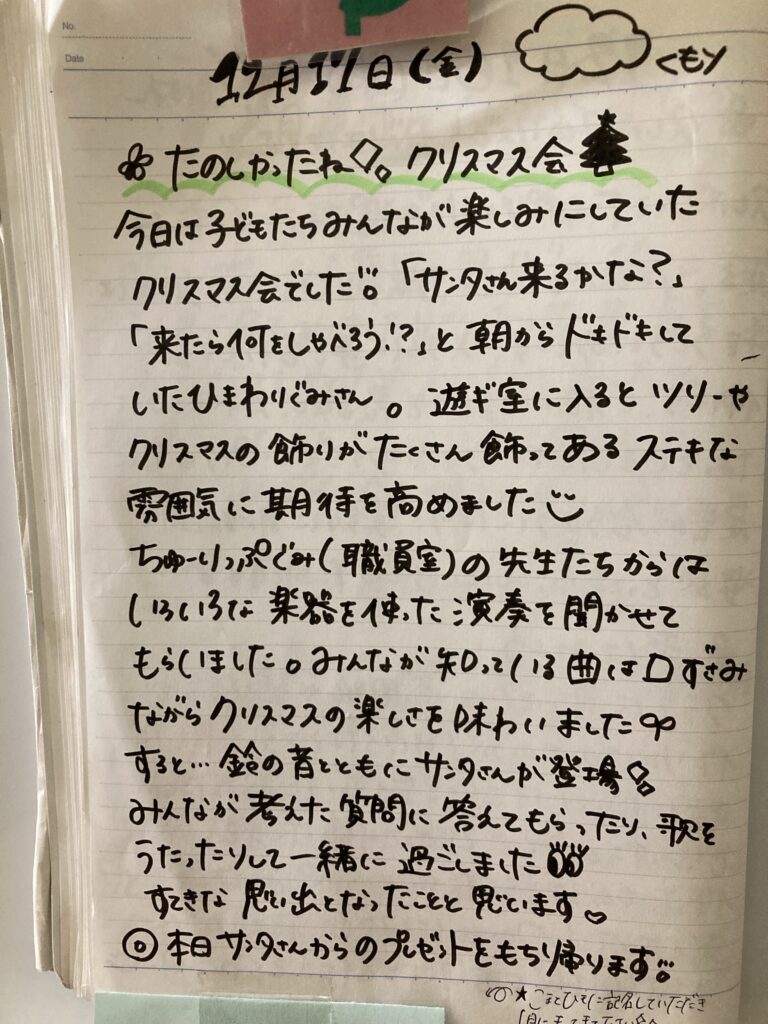 No.
Date
12月17日(金) くもり
たのしかったね!。クリスマス会
今日は子どもたちみんなが楽しみにしていた
クリスマス会でした!。「サンタさん来るかな?」
「来たら何をしゃべろう!?」と朝からドキドキして
いたひまわりぐみさん。遊ギ室に入るとツリーや
クリスマスの飾りがたくさん飾ってあるステキな
雰囲気に期待を高めました
ちゅーりっぷぐみ(職員室)の先生たちからは
いろいろな楽器を使った演奏を聞かせて
もらいました。みんなが知っている曲は口ずさみ
ながらクリスマスの楽しさを味わいました
すると…鈴の音とともにサンタさんが登場!
みんなが考えた質問に答えてもらったり、歌を
うたったりして一緒に過ごしました
すてきな思い出となったことと思います。
◎本日サンタさんからのプレゼントをもち帰ります!。